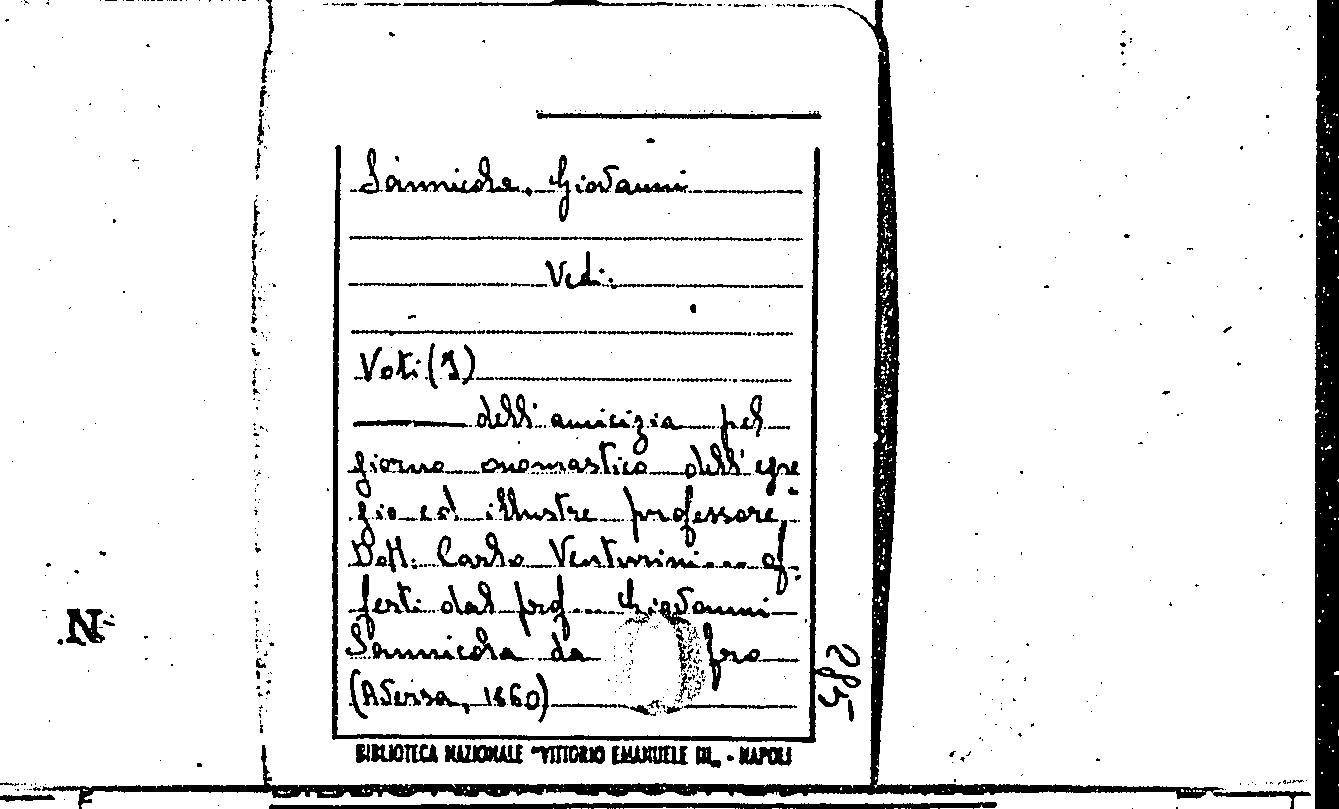 Sannicola, Giovanni
Vedi:
Voti (I)
dell'amicizia pel
giorno onomastico dell'egre
gio ed illustre professore
Dott. Carlo Venturini... of-
ferti dal prof... Giovanni
Sannicola da fro
(Aversa, 1860)
285
N
BIBLIOTECA NAZIONALE "VITTORIO EMANUELE III„ - NAPOLI